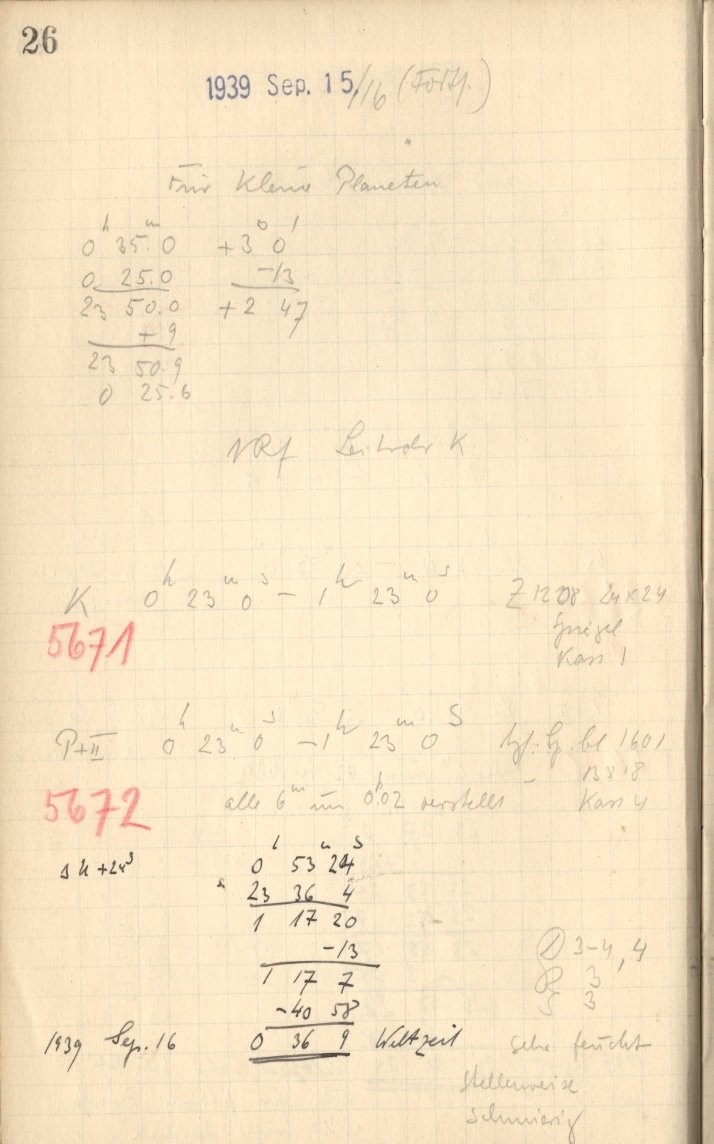 26
1939 Sep. 15./16 (Forts.)
Für Kleine Planeten
0h 35m.0 +3° 0'
0 25.0 -13
23 50.0 +2 47
+9
23 50.9
0 25.6
Leitrohr K
K 0h 23m 0s - 1h 23m 0s Z 1208 24x24
Spiegel
Kass 1
5671
P+II 0h 23m 0s - 1h 23m 0s 1601
13x18
5672 alle 6m um 0.02 verstellt Kass 4
Δu +24s 0h 53m 24s
23 36 4
1 17 20
-13
1 17 7
-40 58
1939 Sep. 16 0 36 9 Weltzeit
3-4, 4
R 3
S 3
sehr feucht
stellenweise
schmierig